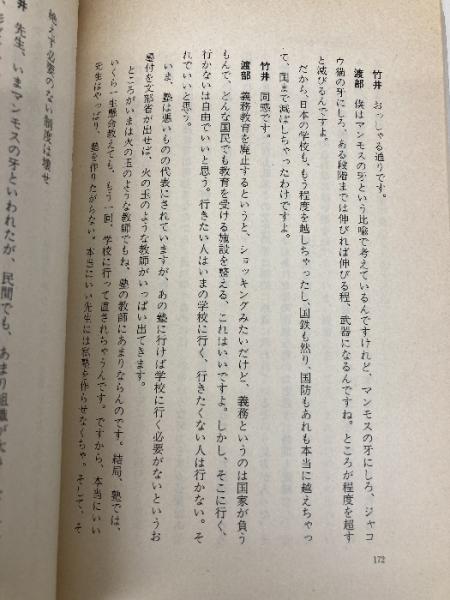 竹井　おっしゃる通りです。
渡部　僕はマンモスの牙という比喩で考えているんですけれど、マンモスの牙にしろ、ジャコ
ウ猫の牙にしろ、ある段階までは伸びれば伸びる程、武器になるんですね。ところが程度を越す
と滅びるんですよ。
だから、日本の学校も、もう程度を越しちゃったし、国鉄も然り、国防もあれも本当に越えちゃっ
て、国まで滅ぼしちゃったわけですよ。
竹井　同感です。
渡部　義務教育を廃止するというと、ショッキングみたいだけど、義務というのは国家が負う
もんで、どんな国民でも教育を受ける施設を整える、これはいいですよ。しかし、そこに行く、
行かないは自由でいいと思う。行きたい人はいまの学校に行く、行きたくない人は行かない。そ
れでいいと思う。
いま、塾は悪いものの代表にされていますが、あの塾に行けば学校に行く必要がないというお
墨付を文部省が出せば、火の玉のような教師がいっぱい出てきます。
ところがいまは火の玉のような教師でもね、塾の教師にあまりならんのです。結局、塾では、
いくら一生懸命教えても、もう一回、学校に行って直されちゃうんです。ですから、本当にいい
先生はやっぱり、塾を作りたがらない。本当にいい先生には私塾を作らせなくちゃ。そして、そ
172
絶えず必要のない制度は壊せ
井　先生、いまマンモスの牙といわれたが、民間でも、あまり組織が大